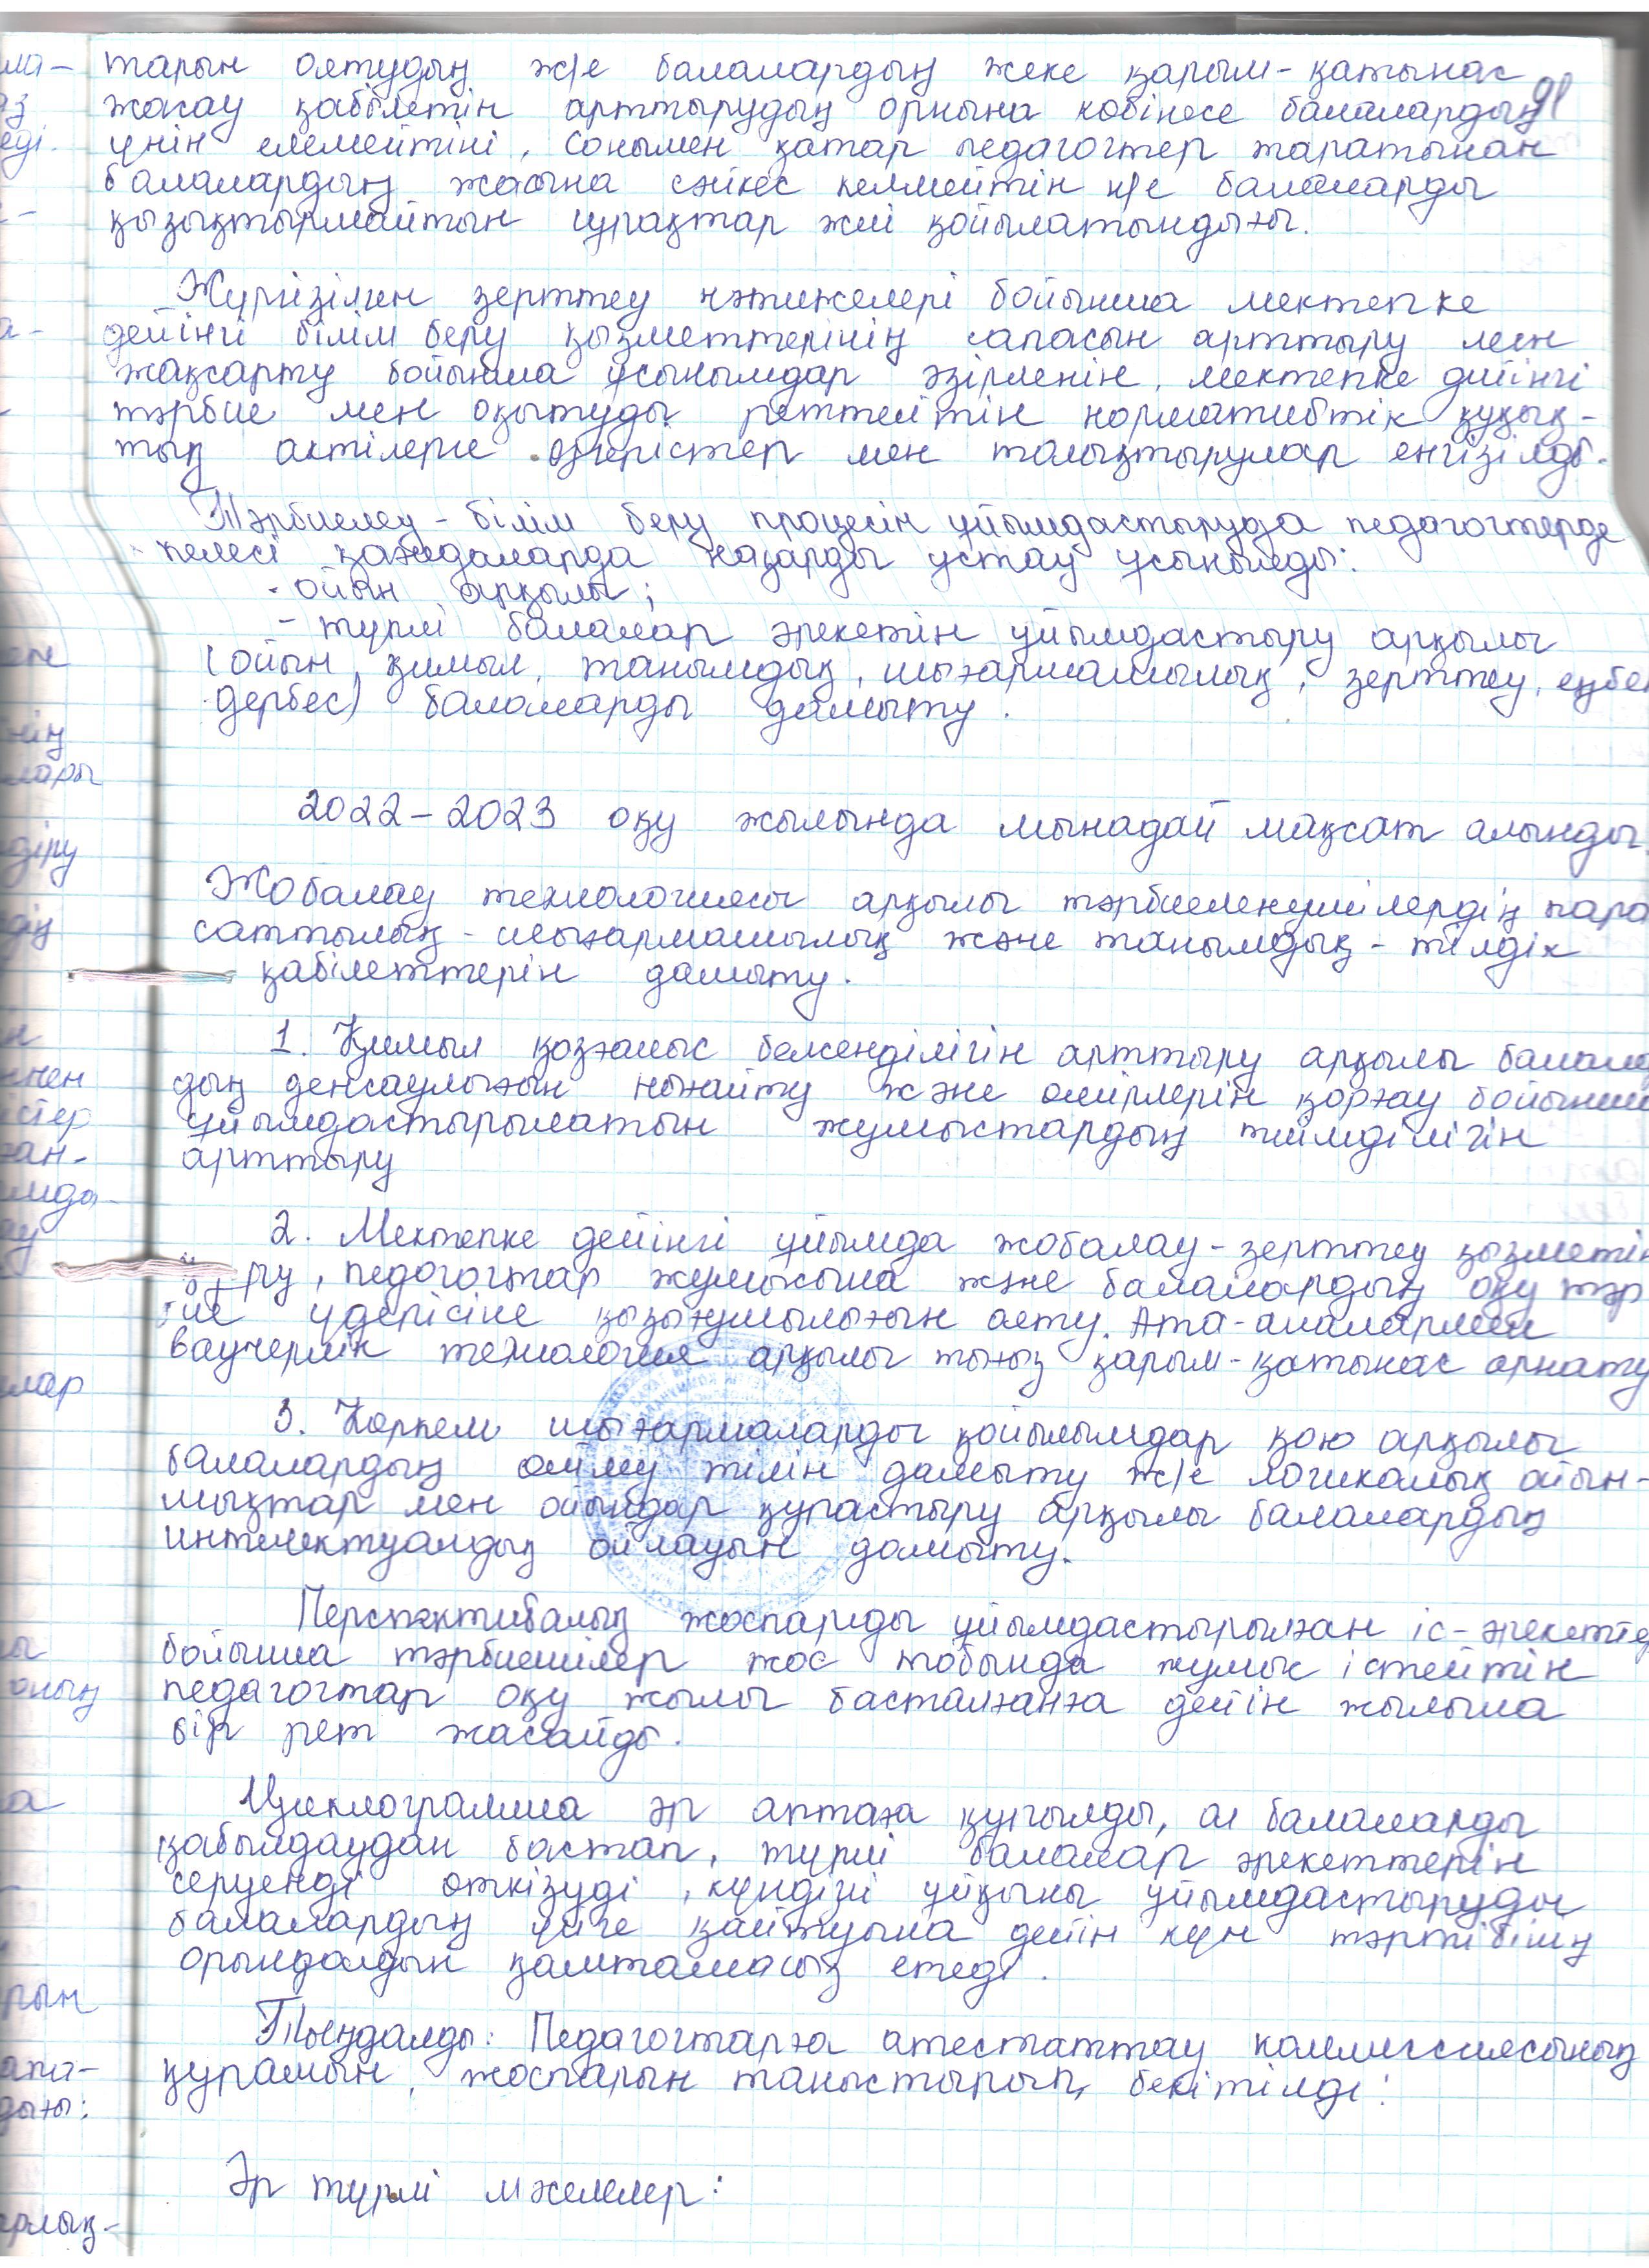 91
тарын оятудың ж/е балалардың жеке қарым-қатынас
жасау қабілетін арттырудың орнына көбінесе балалардың
үнін елемейтіні, Сонымен қатар педагогтер тарапынан
балалардың жасына сәйкес келмейтін ж/е балаларды
қызықтырмайтын сұрақтар жиі қойылатындығы.
Жүргізілген зерттеу нәтижелері бойынша мектепке
дейінгі білім беру қызметтерінің сапасын арттыру мен
жақсарту бойынша ұсынымдар әзірленіп, мектепке дейінгі
тәрбие мен оқытуды реттейтін нормативтік құқық-
тық актілерге өзгерістер мен толықтырулар енгізілді.
Тәрбиелеу-білім беру процесін ұйымдастыруда педагогтерде
келесі қағидаларда назарды ұстау ұсынылды:
- ойын арқылы;
- түрлі балалар әрекетін ұйымдастыру арқылы
(ойын, қимыл, танымдық, шығармашылық, зерттеу, еңбек
дербес) балаларды дамыту.
2022-2023 оқу жылында мынадай мақсат алынды.
Жобалау технологиясы арқылы тәрбиеленушілердің пара
саттылық-шығармашылық және танымдық-тілдік
қабілеттерін дамыту.
1. Қимыл қозғалыс белсенділігін арттыру арқылы балала
дың денсаулығын нығайту және өмірлерін қорғау бойынша
ұйымдастырылатын жұмыстардың тиімділігін
арттыру
2. Мектепке дейінгі ұйымда жобалау-зерттеу қызметін
ру, педогогтар жұмысына және балалардың оқу тәр
ие үдерісіне қызығушылығын ояту. Ата-аналармен
ваучерлік технология арқылы тығыз қарым-қатынас орнату
3. Көркем шығармаларды қойылымдар қою арқылы
балалардың сөйлеу тілін дамыту ж/е логикалық ойын-
шықтар мен ойындар құрастыру арқылы балалардың
интелектуалдық ойлауын дамыту.
Перспективалық жоспарды ұйымдастырылған іс-әрекетте
бойынша тәрбиешілер жас тобында жұмыс істейтін
педагогтар оқу жылы басталғанға дейін жылына
бір рет жасайды.
Циклограмма әр аптаға құрылды, ол балаларды
қабылдаудан бастап, түрлі балалар әрекеттерін
серуенді өткізуді, күндізгі ұйқыны ұйымдастыруды
балалардың үйге қайтуына дейін күн тәртібінің
орындалдын қамтамасыз етеді.
Тыңдалды: Педагогтарға атестаттау коммиссиясының
құрамын, жоспарын таныстырып, бекітілді!
Әр түрлі мәселелер: